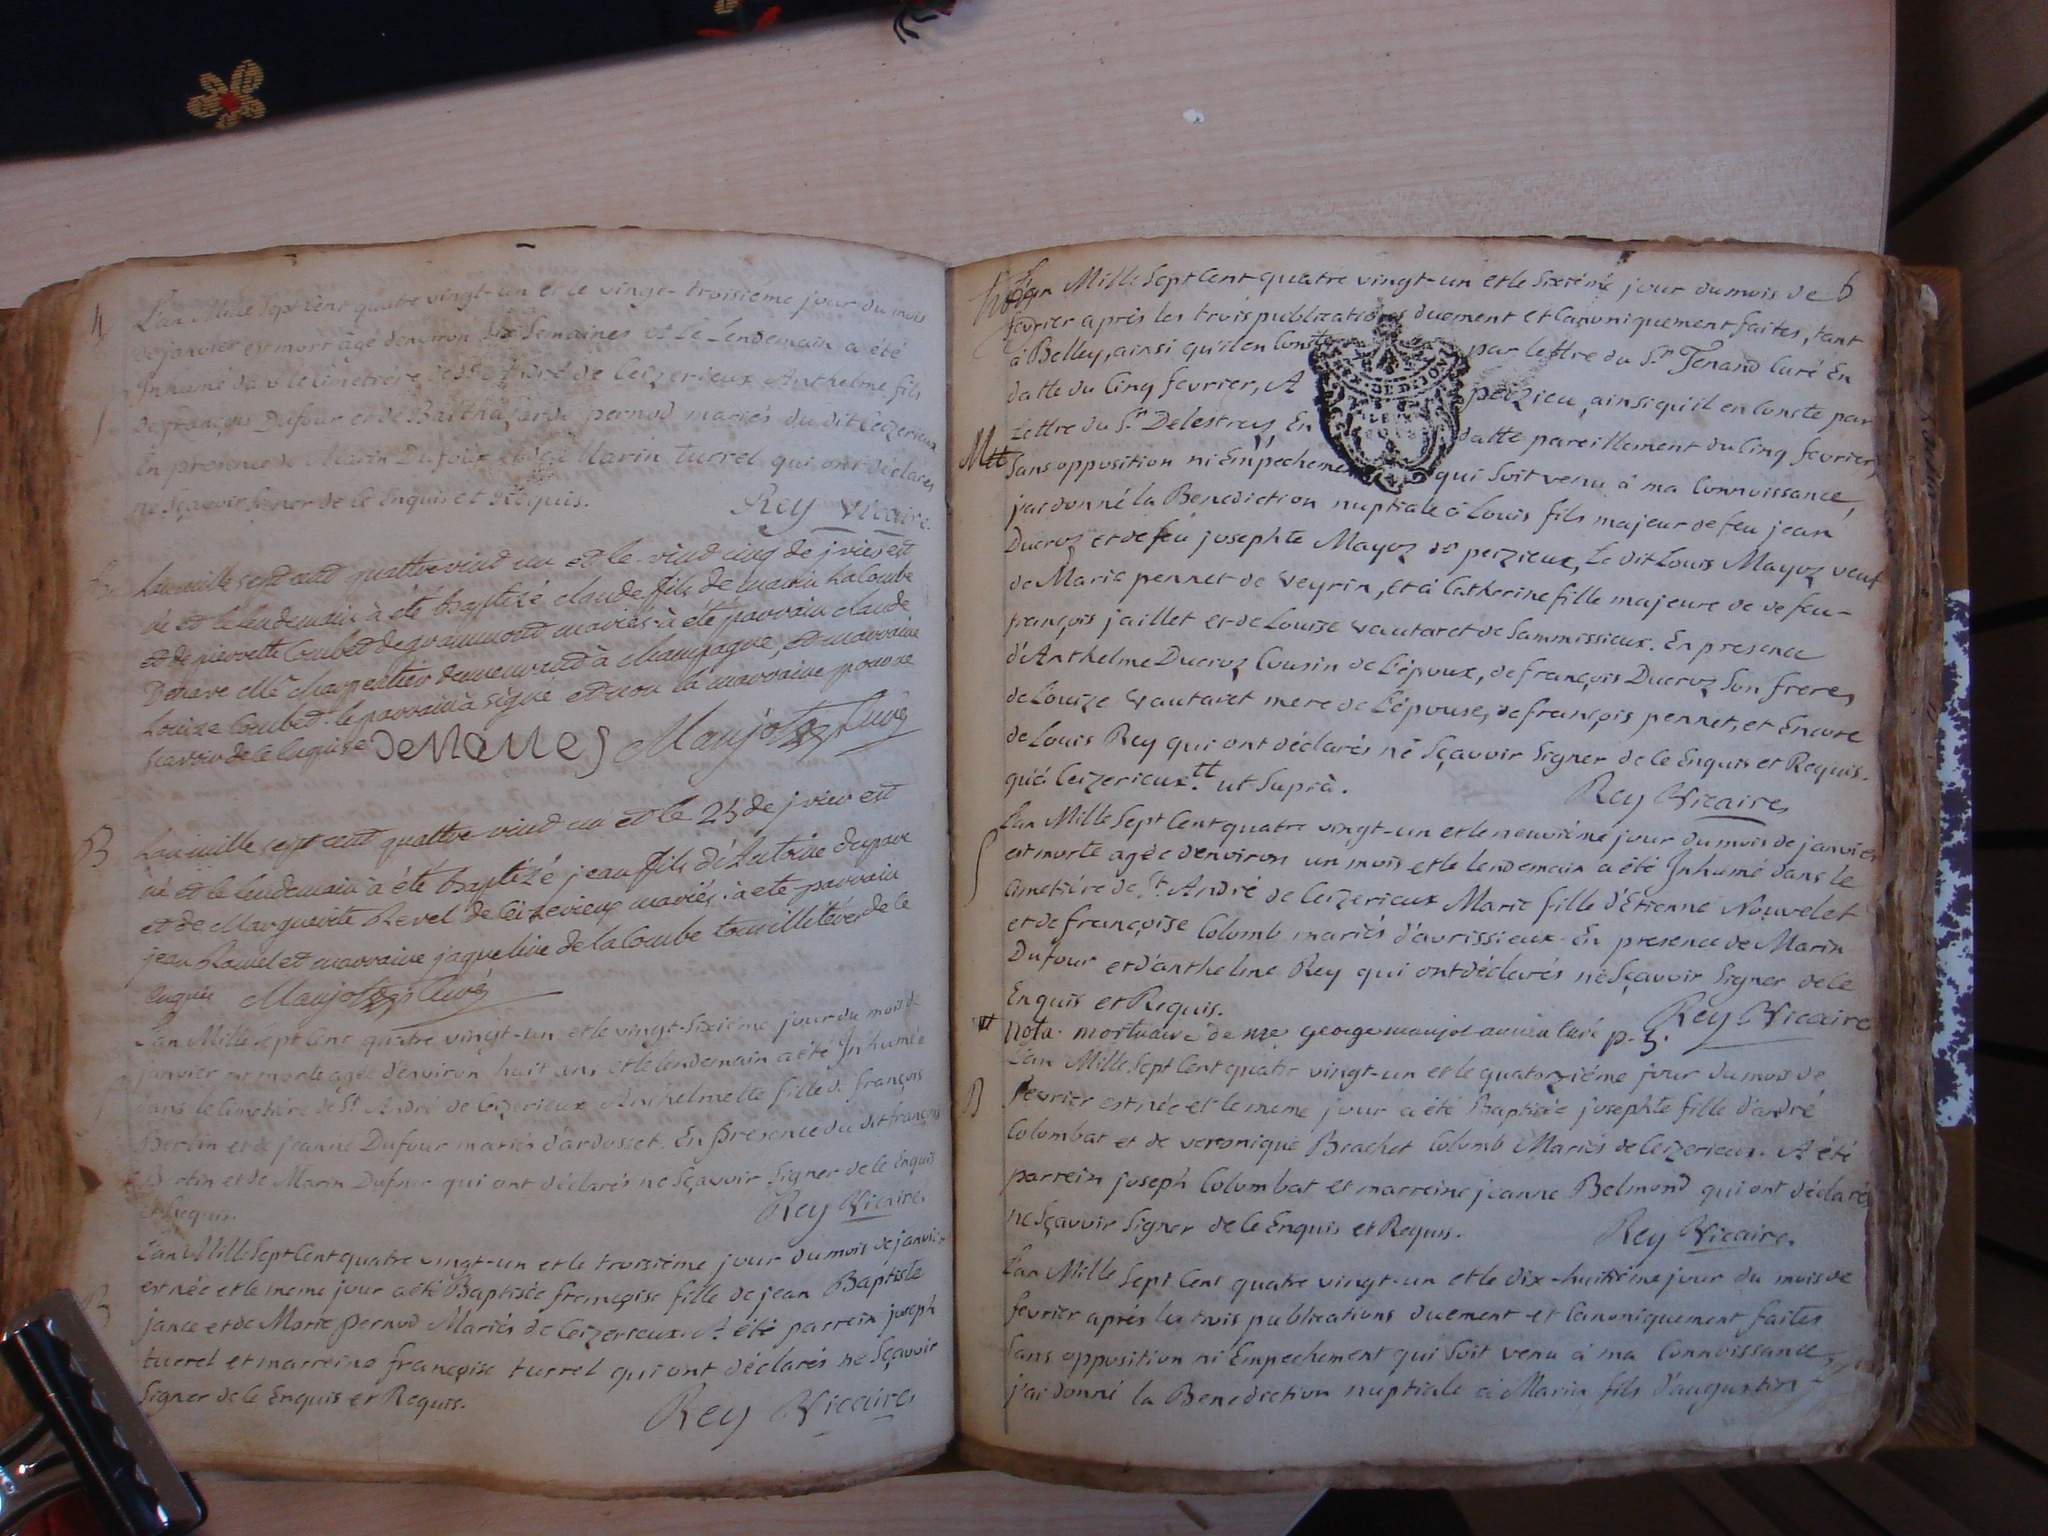 4
L'an Mille Sept Cent quatre vingt-un et le vingt-troisiéme jour du mois
de janvier est mort agé d'environ six Semaines et Le Lendemain a été
Inhumé dans le Cimetiére de St André de Ceizerieux Anthelme fils
de françois Dufour et de Balthazarde pernod mariés du dit Ceizerieux
En presence de Marin Dufour et de Marin turrel qui ont déclarés
ne Sçavoir signer de ce Enquis et Requis.
Rey Vicaire
L'an mille sept cent quattre vint un et le vint cinq de jvier est
né et le lendemain à été baptizé claude fils de marin LaCombe
et de pierrette Combet de grammont mariés à été parrain claude
Denave Mtre charpentier demeurant à champagne, et marraine
Louize Combet. le parrain à signé et non la marraine pour ne
scavoir de ce enquise DeNaues Maujot Curé
B
L'an mille sept cent quattre vint un et le 25 de jvier est
né et le lendemain à été baptizé jean fils d'Antoine
et de Marguerite Revel de Ceizerieux mariés. à été parrain
jean Ramel et marraine jaqueline de la Combe tous illitérés de ce
enquis Maujot Curé
L'an Mille Sept Cent quatre vingt-un et le vingt-Sixiéme jour du mois de
janvier est morte agée d'environ huit ans et le lendemain a été Inhumée
dans le Cimetiére de St André de Ceizerieux Anthelmette fille de françois
Bertin et de jeanne Dufour mariés d'ardosset. En presence du dit françois
Bertin et de Marin Dufour qui ont déclarés ne Sçavoir Signer de Ce Enquis
et Requis.
Rey Vicaire.
B
L'an Mille Sept Cent quatre vingt-un et le troisiéme jour du mois de janvier
est née et le meme jour a été Baptisée françoise fille de jean Baptiste
jance et de Marie pernod Mariés de Ceizerieux. A été parrein joseph
turrel et marreine françoise turrel qui ont déclarés ne Sçavoir
Signer de Ce Enquis et Requis.
Rey Vicaire
6
L'an Mille Sept Cent quatre vingt-un et le Sixiéme jour du mois de
fevrier aprés les trois publications duement et Canoniquement faites, tant
à Belley, ainsi qu'il en Conste par lettre du Sr Tenand Curé En
datte du Cinq fevrier, A peizieu, ainsi qu'il en Conste par
Lettre du Sr Delestrey En datte pareillement du Cinq fevrier,
Mtt
Sans opposition ni Empechement qui Soit venu à ma Connoissance,
j'ai donné la Benediction nuptiale à Louis fils majeur de feu jean
Ducroz et de feu josephte Mayoz de peizieux, Le dit Louis Mayoz veuf
de Marie pennet de Veyrin, et à Catherine fille majeure de de feu-
françois jaillet et de Louise Vautaret de Sammissieux. En presence
d'Anthelme Ducroz Cousin de l'époux, de françois Ducroz Son frere,
de Louize Vautaret mere de l'épouse, de françois pennet, et Encore
de Louis Rey qui ont déclarés né Sçavoir Signer de Ce Enquis et Requis.
Ceizerieux. tt ut Suprà.
Rey Vicaire
L'an Mille Sept Cent quatre vingt-un et le neuviéme jour du mois de janvier
est morte agée d'environ un mois et le lendemain a été Inhumé dans le
Cimetiére de St André de Ceizerieux Marie fille d'Etienne Nouvelet
et de françoise Colomb mariés d'avrissieux. En presence de Marin
Dufour et d'anthelme Rey qui ont déclarés ne Sçavoir Signer de Ce
Enquis et Requis.
Rey Vicaire
nota. mortuaire de me george maujot ancien Curé p. 5.
L'an Mille Sept Cent quatre vingt-un et le quatorziéme jour du mois de
B
fevrier est née et le meme jour a été Baptisée josephte fille d'andré
Colombat et de veronique Brachet Colomb Mariés de Ceizerieux. A été
parrein joseph Colombat et marreine jeanne Belmond qui ont déclarés
ne Sçavoir Signer de Ce Enquis et Requis.
Rey Vicaire.
L'an Mille Sept Cent quatre vingt-un et le dix-huitiéme jour du mois de
fevrier aprés les trois publications duement et Canoniquement faites
Sans opposition ni Empechement qui Soit venu à ma Connoissance,
j'ai donné la Benediction nuptiale à Marin fils d'augustin